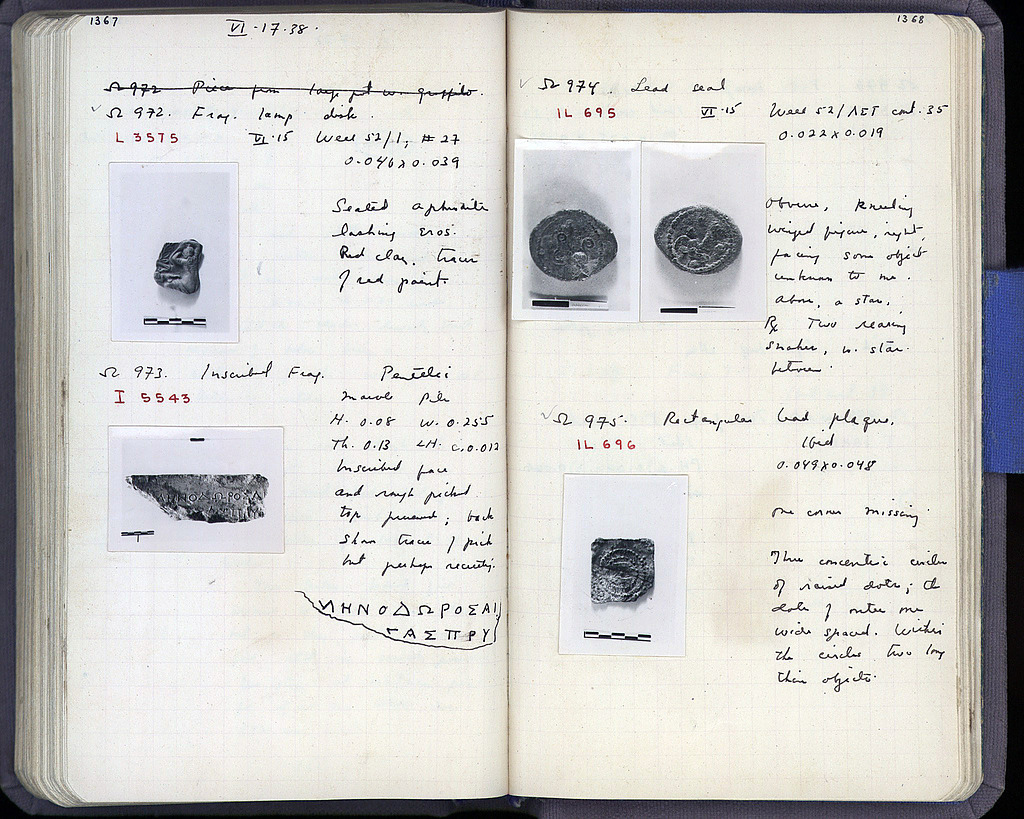 1367
VI·17·38·
Ω 972 Piece from large pt w. graffito.
Ω 972. Frag. lamp disk.
L 3575 VI·15 Well 52/1, #27
0.046 x 0.039
Seated aphrodite
lashing Eros.
Red clay, traces
of red paint.
Ω 973. Inscribed Frag. Pentelic
marble
I 5543
H. 0.08 W. 0.255
Th. 0.13 LH. c. 0.012
Inscribed face
and rough picked
top preserved; back
shows traces of pick
but perhaps recently.
ΜΗΝΟΔΩΡΟΣΑΙ
ΓΑΣΠΡΥ
1368
Ω 974 Lead seal
IL 695 VI·15 Well 52/ cont. 35
0.022 x 0.019
Obverse, kneeling
winged figure, right,
facing some object
unknown to me.
Above, a star.
Rx Two rearing
snakes, w. star
between.
Ω 975. Rectangular lead plaque.
IL 696 Ibid
0.049 x 0.048
One corner missing.
Three concentric circles
of raised dots; the
dots of outer one
wide spaced. Within
the circles two long
thin objects.